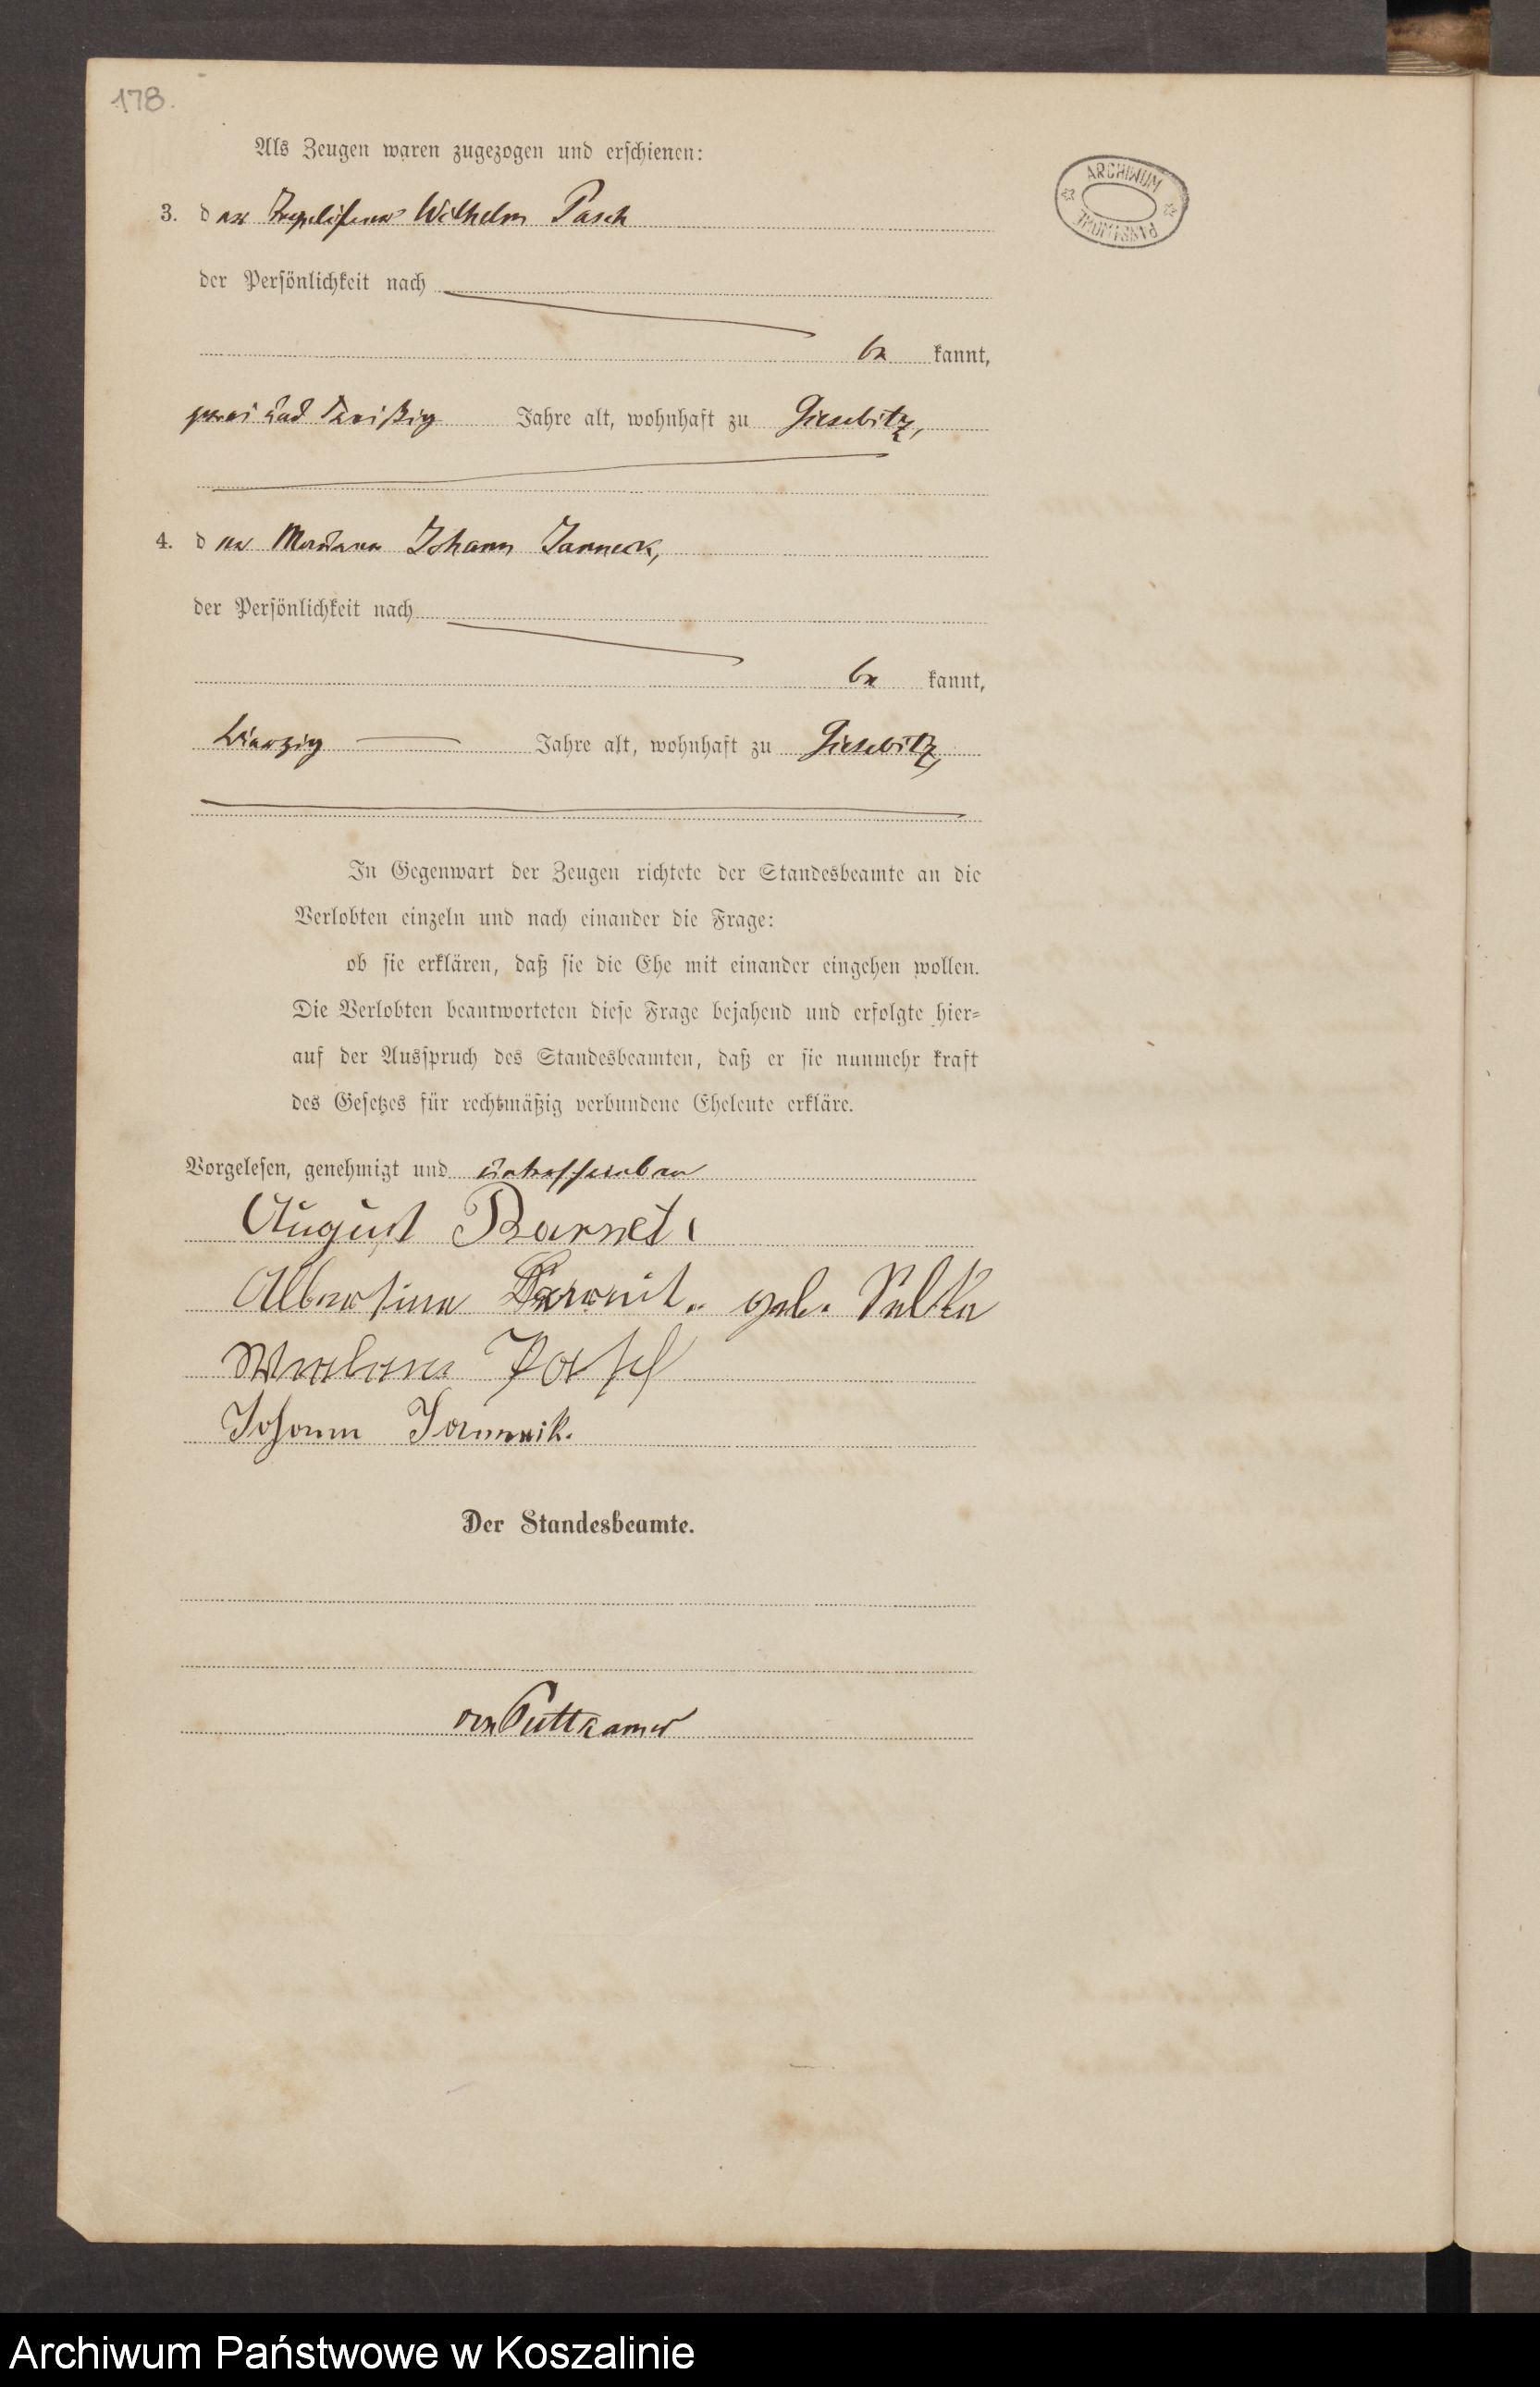 178.
Als Zeugen waren zugezogen und erschienen:
3. der Wilhelm Pasch
der Persönlichkeit nach
be kannt,
zwei und dreißig Jahre alt, wohnhaft zu Giesebitz,
4. der Johann Janneck,
der Persönlichkeit nach
be kannt,
vierzig Jahre alt, wohnhaft zu Giesebitz,
In Gegenwart der Zeugen richtete der Standesbeamte an die
Verlobten einzeln und nach einander die Frage:
ob sie erklären, daß sie die Ehe mit einander eingehen wollen.
Die Verlobten beantworteten diese Frage bejahend und erfolgte hier=
auf der Ausspruch des Standesbeamten, daß er sie nunmehr kraft
des Gesetzes für rechtmäßig verbundene Eheleute erkläre.
Vorgelesen, genehmigt und unterschrieben
August
Albertine geb.
Johann Janneck.
Der Standesbeamte.
von Puttkamer
ARCHIWUM PAŃSTWOWE
Archiwum Państwowe w Koszalinie